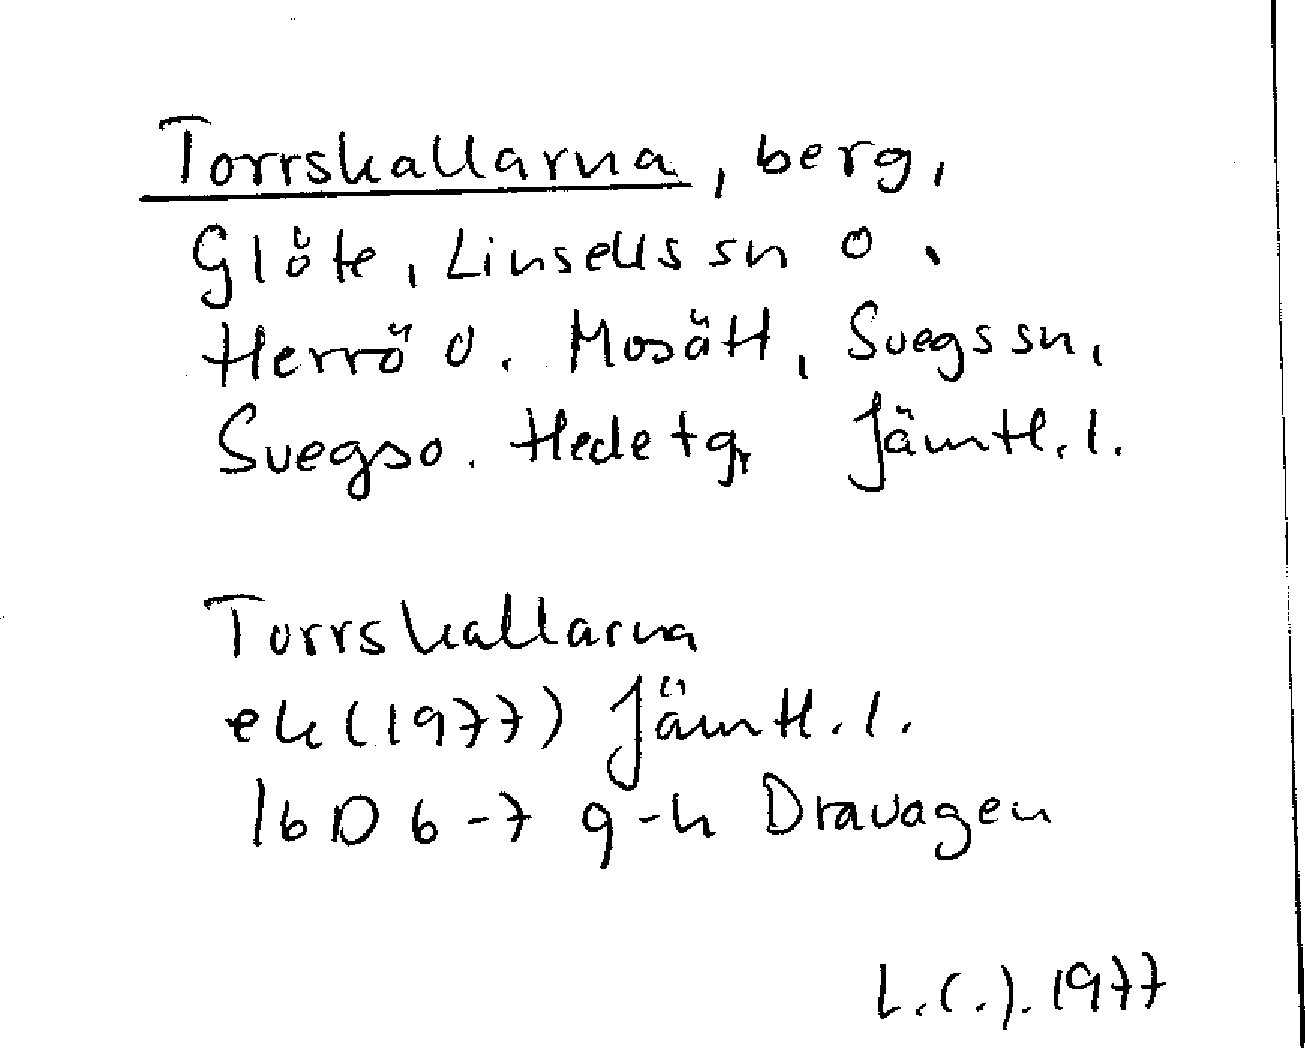 Torrskallarna, berg,
Glöte, Linsells sn o.
Herrö o. Mosätt, Svegs sn,
Svegs o. Hede tg, Jämtl. l.
Torrskallarna
ek (1977) Jämtl. l.
16 D 6-7 g-h Dravagen
L.C.J. 1977